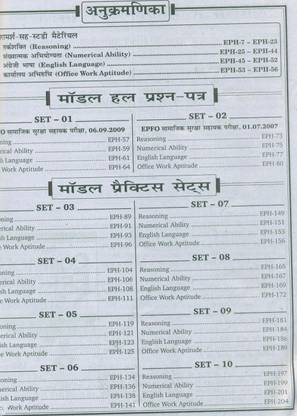 अनुक्रमणिका
परामर्श-सह-स्टडी मैटेरियल
तर्कशक्ति (Reasoning) EPH-7 – EPH-23
संख्यात्मक अभियोग्यता (Numerical Ability) EPH-25 – EPH-44
अंग्रेजी भाषा (English Language) EPH-45 – EPH-52
कार्यालय अभिरुचि (Office Work Aptitude) EPH-53 – EPH-56
मॉडल हल प्रश्न-पत्र
SET – 01
EPFO सामाजिक सुरक्षा सहायक परीक्षा, 06.09.2009
Reasoning EPH-57
Numerical Ability EPH-59
English Language EPH-61
Office Work Aptitude EPH-64
SET – 02
EPFO सामाजिक सुरक्षा सहायक परीक्षा, 01.07.2007
Reasoning EPH-73
Numerical Ability EPH-75
English Language EPH-77
Office Work Aptitude EPH-80
मॉडल प्रैक्टिस सेट्स
SET – 03
Reasoning EPH-89
Numerical Ability EPH-91
English Language EPH-93
Office Work Aptitude EPH-96
SET – 04
EPH-104
Numerical Ability EPH-106
English Language EPH-108
Office Work Aptitude EPH-111
SET – 05
EPH-119
Numerical Ability EPH-121
English Language EPH-123
Office Work Aptitude EPH-125
SET – 06
EPH-134
Numerical Ability EPH-136
English Language EPH-138
Office Work Aptitude EPH-141
SET – 07
Reasoning EPH-149
Numerical Ability EPH-151
English Language EPH-153
Office Work Aptitude EPH-156
SET – 08
Reasoning EPH-165
Numerical Ability EPH-167
English Language EPH-169
Office Work Aptitude EPH-172
SET – 09
Reasoning EPH-181
Numerical Ability EPH-184
English Language EPH-186
Office Work Aptitude EPH-189
SET – 10
Reasoning EPH-197
Numerical Ability EPH-199
English Language EPH-201
Office Work Aptitude EPH-204